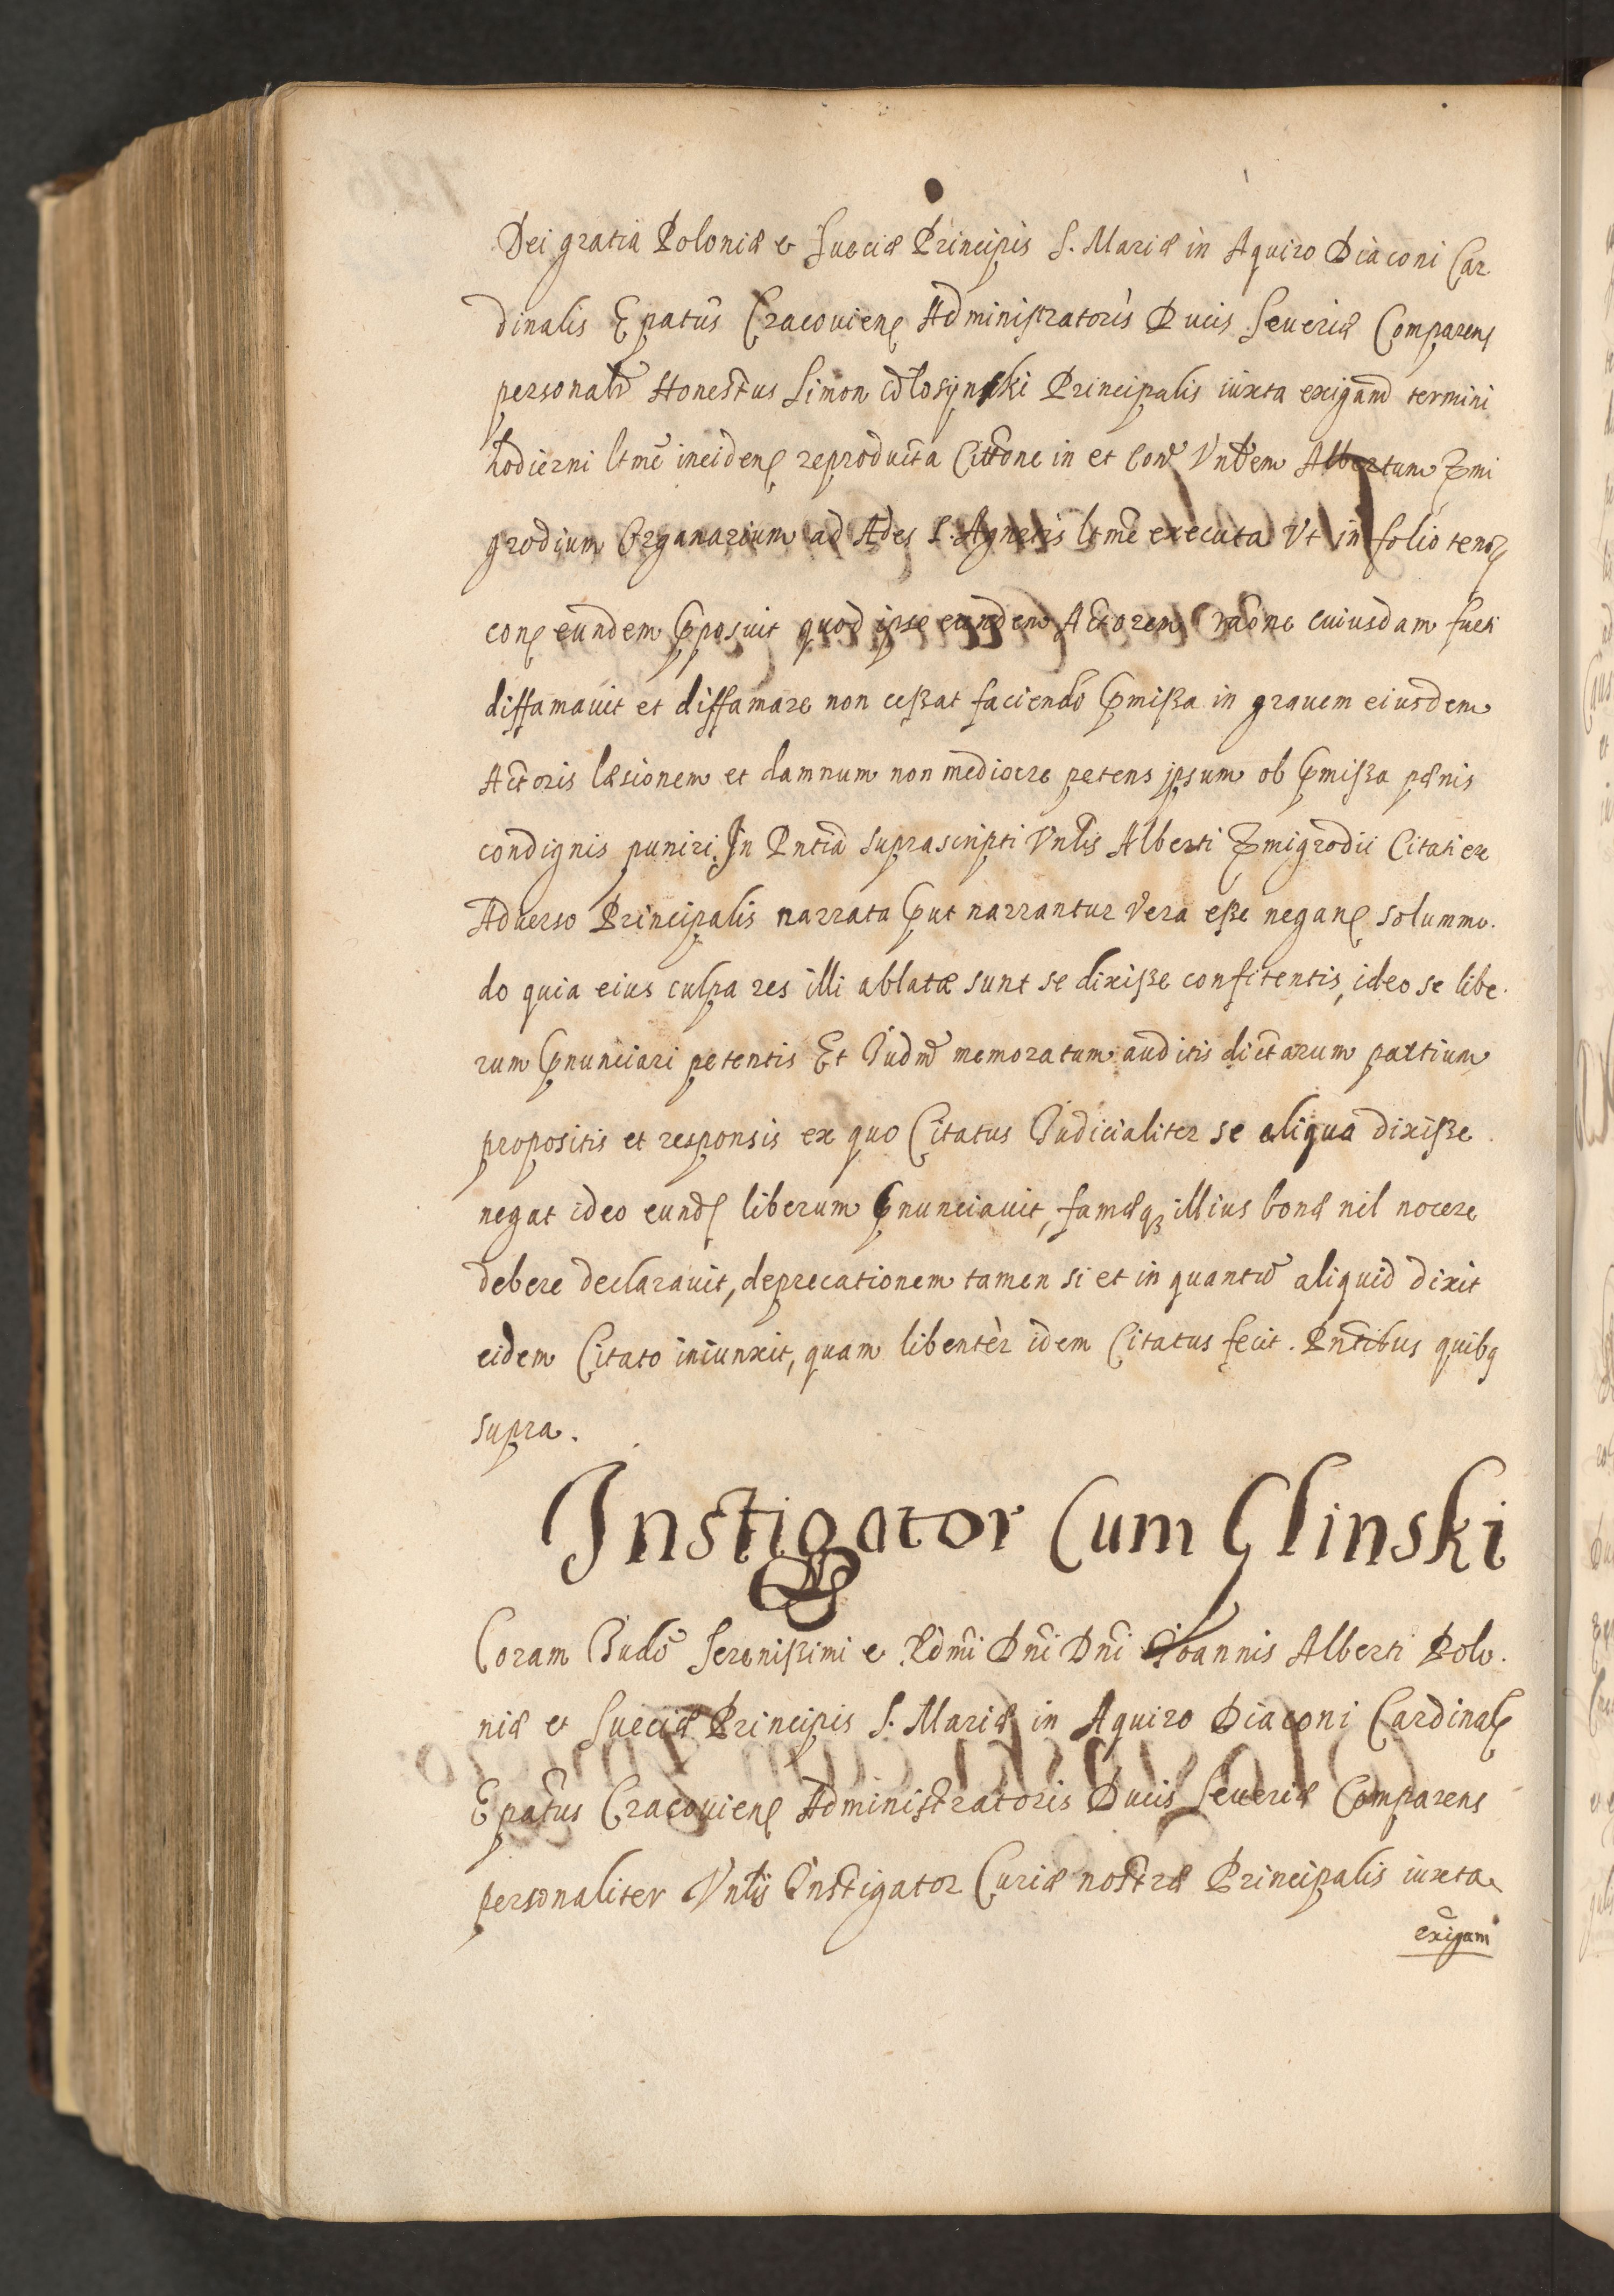 Dei gratia Poloniæ et Sueciæ Principis S. Mariæ in Aquiro Diaconi Car
dinalis Epatus Cracouien Administratoris Ducis Seueriæ Comparens
personalr Honestus Simon Principalis iuxta exigam termini
hodierni ltme inciden reproducta Cittone in et con Vnblem Albertum Zmi
grodium Organarium ad Ædes S. Agnetis ltme executa Vt in folio teno
con eundem pposuit quod ipse eundem Actorem raone cuiusdam furti
diffamauit et diffamare non ceßat faciendo pmißa in grauem eiusdem
Actoris læsionem et damnum non mediocre petens ipsum ob pmißa pænis
condignis puniri. In Pntia suprascripti Vnlis Alberti Zmigrodii Citati ex
Aduerso Principalis narrata put narrantur Vera eße negan solummo.
do quia eius culpa res illi ablatæ sunt se dixiße confitentis, ideo se libe.
rum pnunciari petentis Et Iudm memoratum auditis dictarum partium
propositis et responsis ex quo Citatus Iudicialiter se aliqua dixiße
negat ideo eund liberum pnunciauit, famæq3 illius bonæ nil nocere
debere declarauit, deprecationem tamen si et in quantu aliquid dixit
eidem Citato iniunxit, quam libentèr idem Citatus fecit. Pntibus quibq
supra.
Instigator Cum Glinski
Coram Iudo Serenißimi e Rdmi Dni Dni Ioannis Alberti Polo.
niæ et Sueciæ Principis S. Mariæ in Aquiro Diaconi Cardinal
Epatus Cracouien Administratoris Ducis Seueriæ Comparens
personaliter Vnlis Instigator Curiæ nostræ Principalis iuxta
exigam